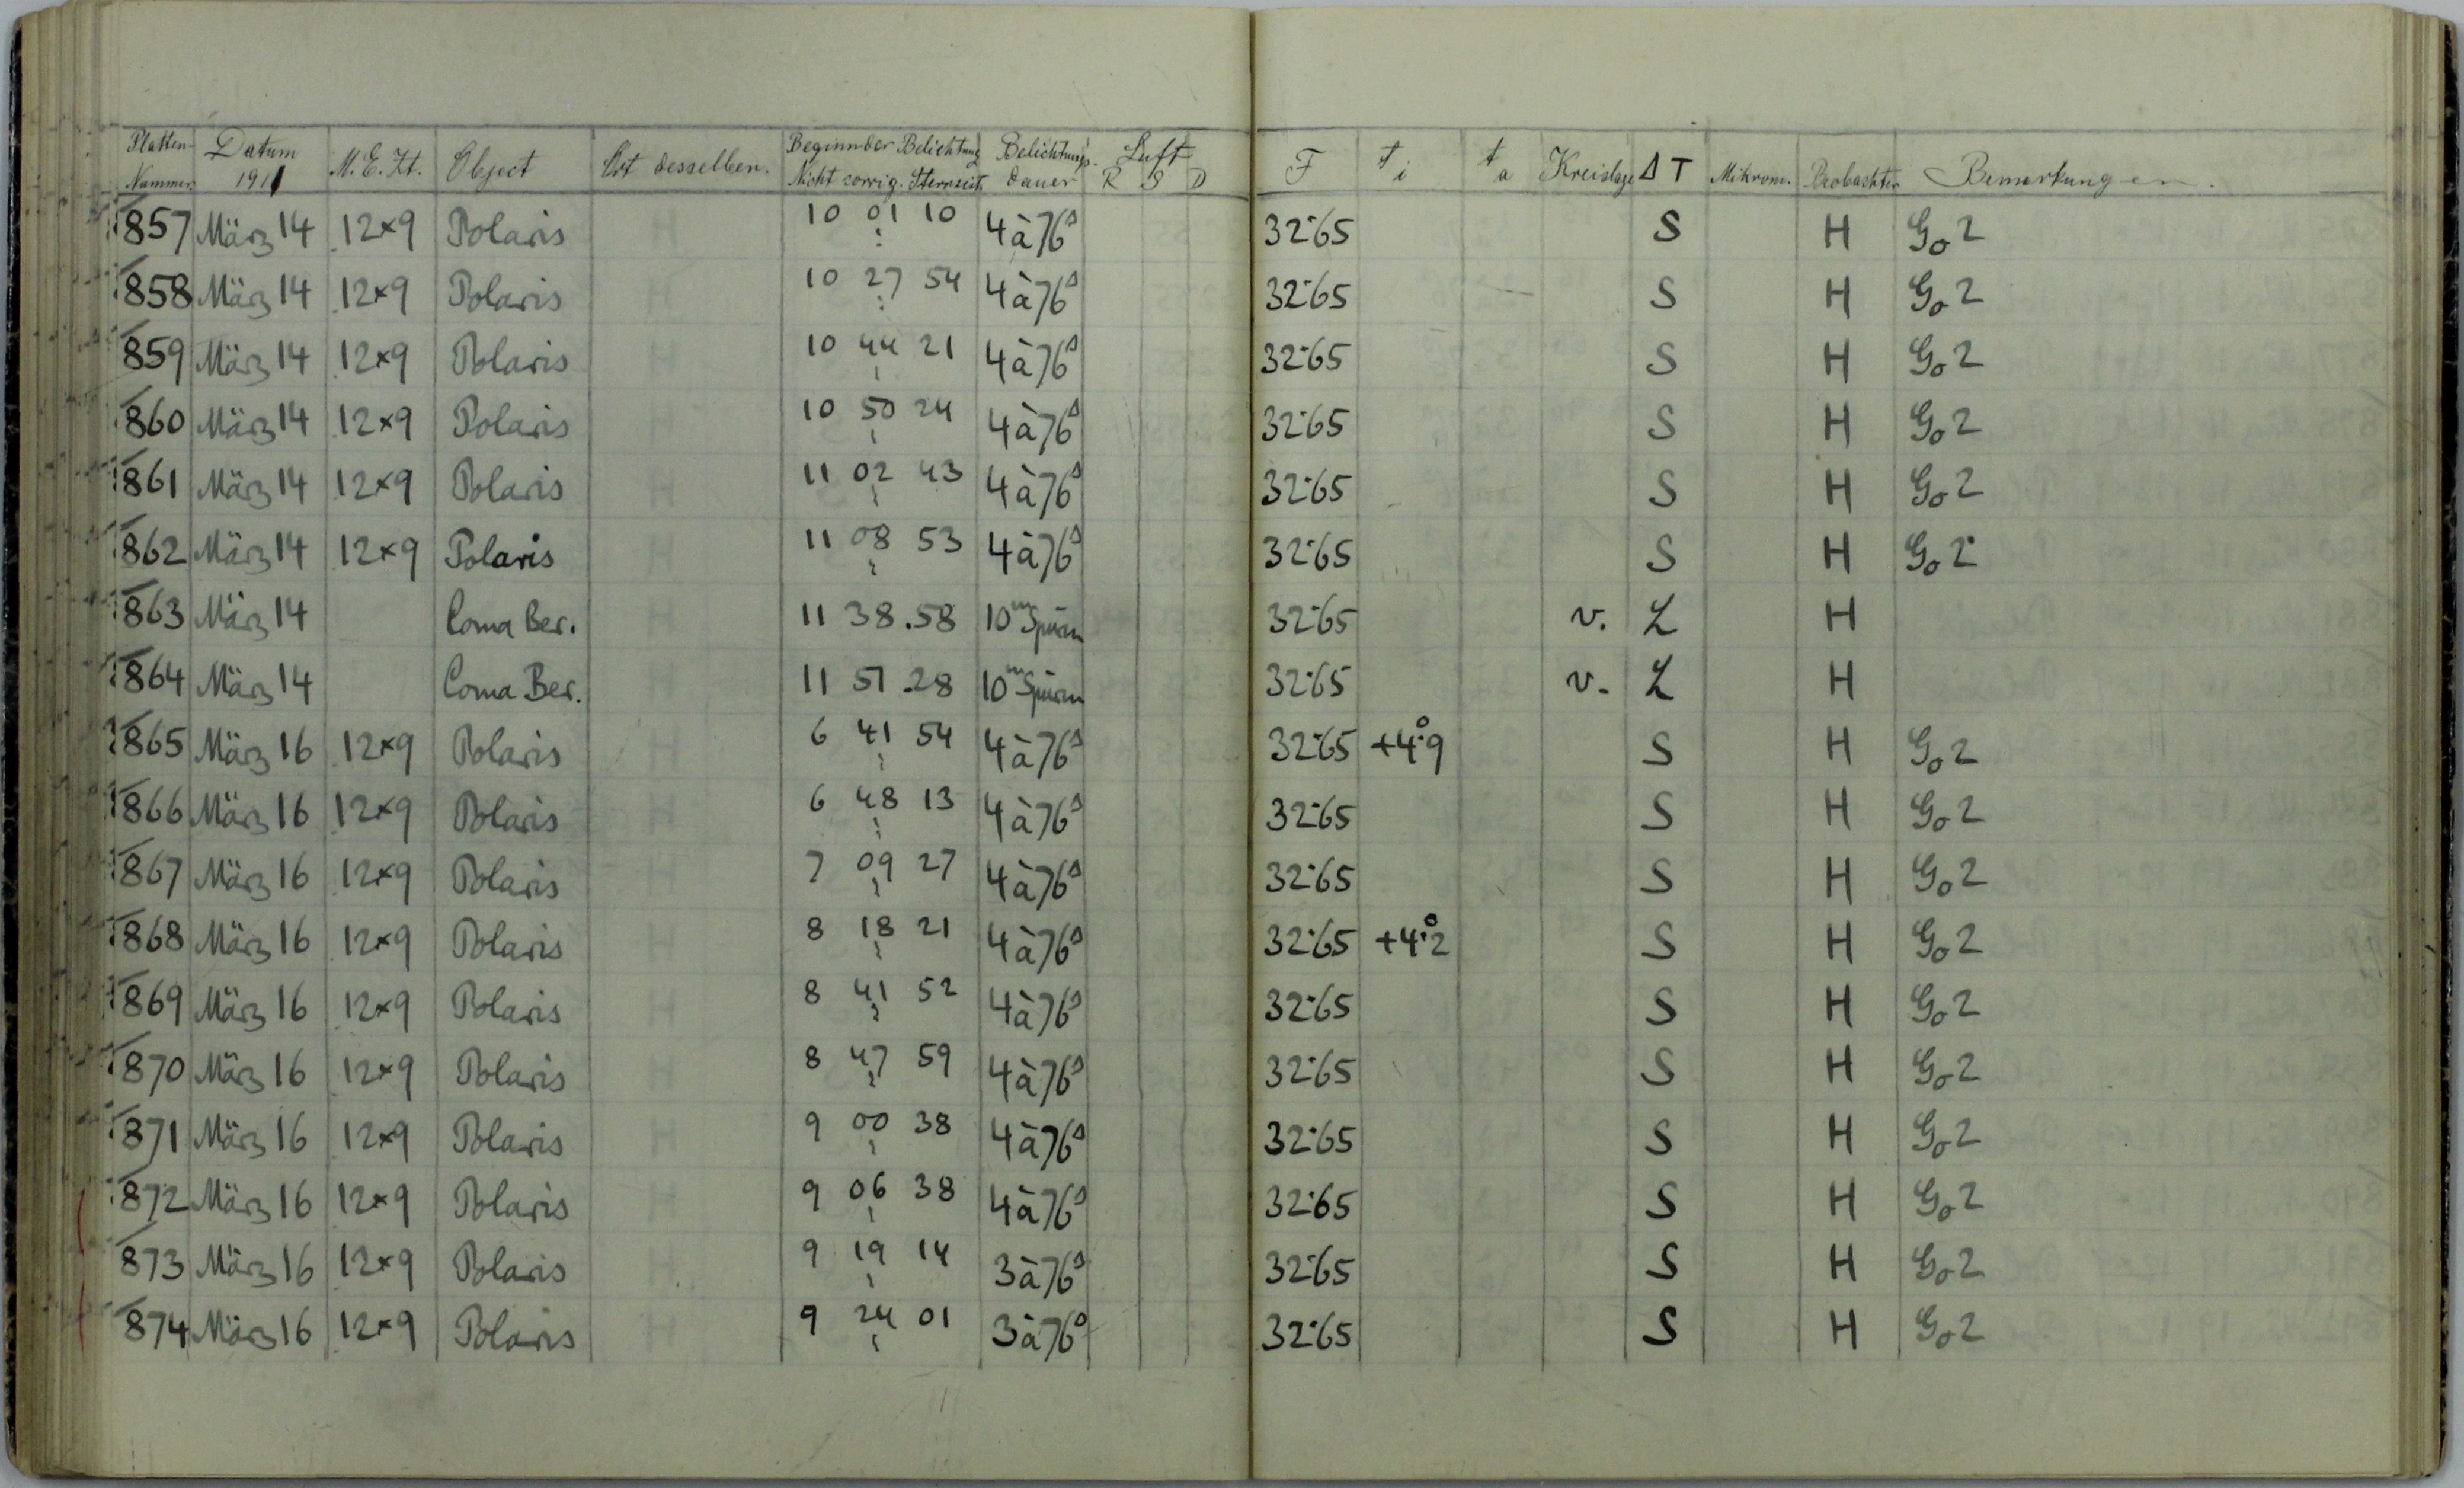 Platten-Nummer Datum 1911 M.E.Zt. Object Ort desselben. Beginn der Belichtung Nicht corrig. Sternzeit Belichtungs-dauer Luft R S D F t i t a Kreislage Δ T Mikrom. Beobachter Bemerkungen.
1857 März 14 12×9 Polaris 10 01 10 4 à 76s 32.65 S H Go 2
1858 März 14 12×9 Polaris 10 27 54 4 à 76s 32.65 S H Go 2
1859 März 14 12×9 Polaris 10 44 21 4 à 76s 32.65 S H Go 2
1860 März 14 12×9 Polaris 10 50 24 4 à 76s 32.65 S H Go 2
1861 März 14 12×9 Polaris 11 02 43 4 à 76s 32.65 S H Go 2
1862 März 14 12×9 Polaris 11 08 53 4 à 76s 32.65 S H Go 2
1863 März 14 Coma Ber. 11 38.58 10m Spuren 32.65 v. L H
1864 März 14 Coma Ber. 11 51.28 10m Spuren 32.65 v. L H
1865 März 16 12×9 Polaris 6 41 54 4 à 76s 32.65 +4°.9 S H Go 2
1866 März 16 12×9 Polaris 6 48 13 4 à 76s 32.65 S H Go 2
1867 März 16 12×9 Polaris 7 09 27 4 à 76s 32.65 S H Go 2
1868 März 16 12×9 Polaris 8 18 21 4 à 76s 32.65 +4°.2 S H Go 2
1869 März 16 12×9 Polaris 8 41 52 4 à 76s 32.65 S H Go 2
1870 März 16 12×9 Polaris 8 47 59 4 à 76s 32.65 S H Go 2
1871 März 16 12×9 Polaris 9 00 38 4 à 76s 32.65 S H Go 2
1872 März 16 12×9 Polaris 9 06 38 4 à 76s 32.65 S H Go 2
1873 März 16 12×9 Polaris 9 19 14 3 à 76s 32.65 S H Go 2
1874 März 16 12×9 Polaris 9 24 01 3 à 76s 32.65 S H Go 2